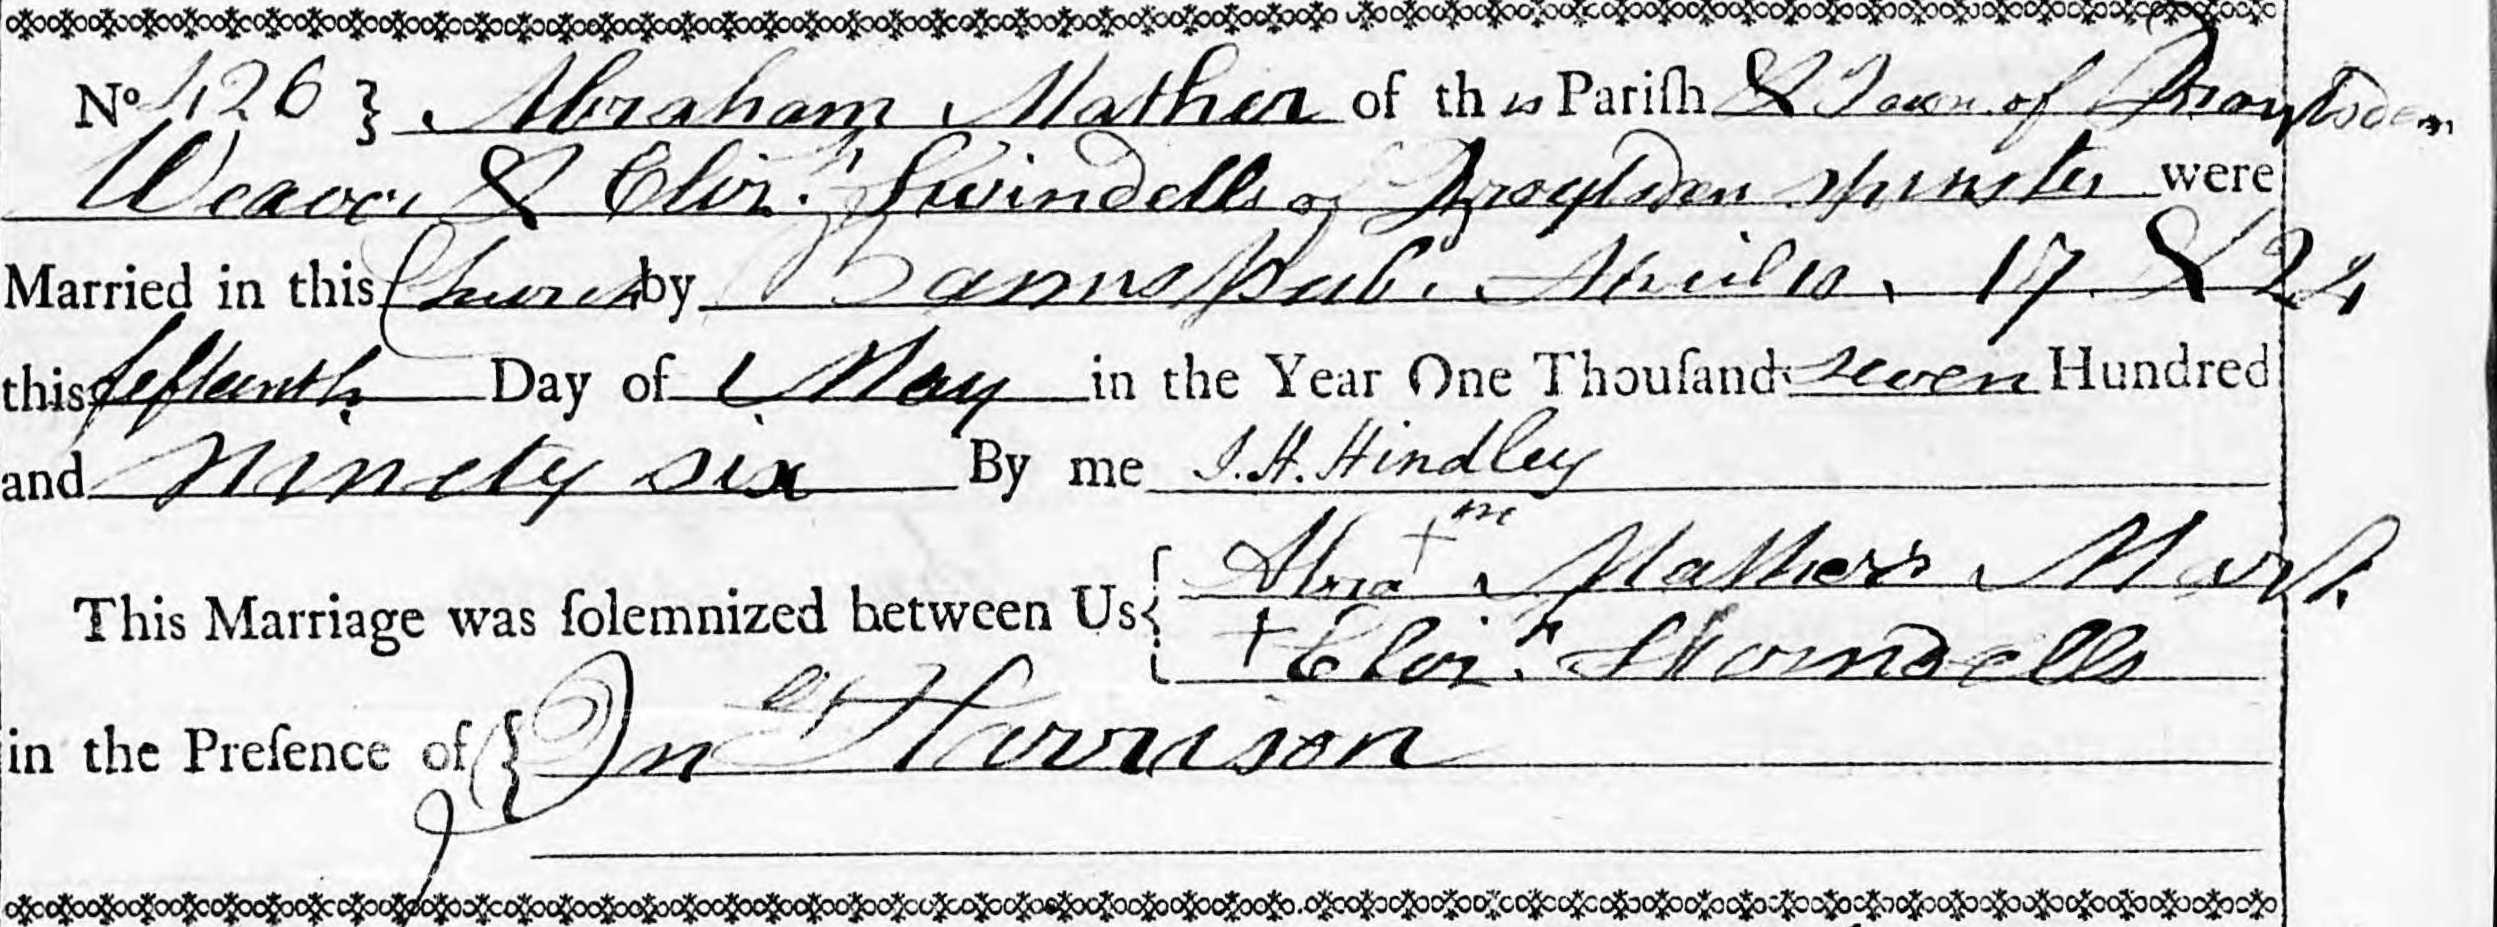 No 426 } Abraham Mather of this Pariſh & Town of Droylsden
Weaver & Eliz.th Swindells of Droylsden spinster were
Married in this Church by Banns pub. April 10, 17 & 24
this fifteenth Day of May in the Year One Thouſand seven Hundred
and ninety six By me J. H. Hindley
This Marriage was ſolemnized between Us { Abra + m Mathers Mark
+ Eliz.th Swindells
in the Preſence of { Jn Harrison